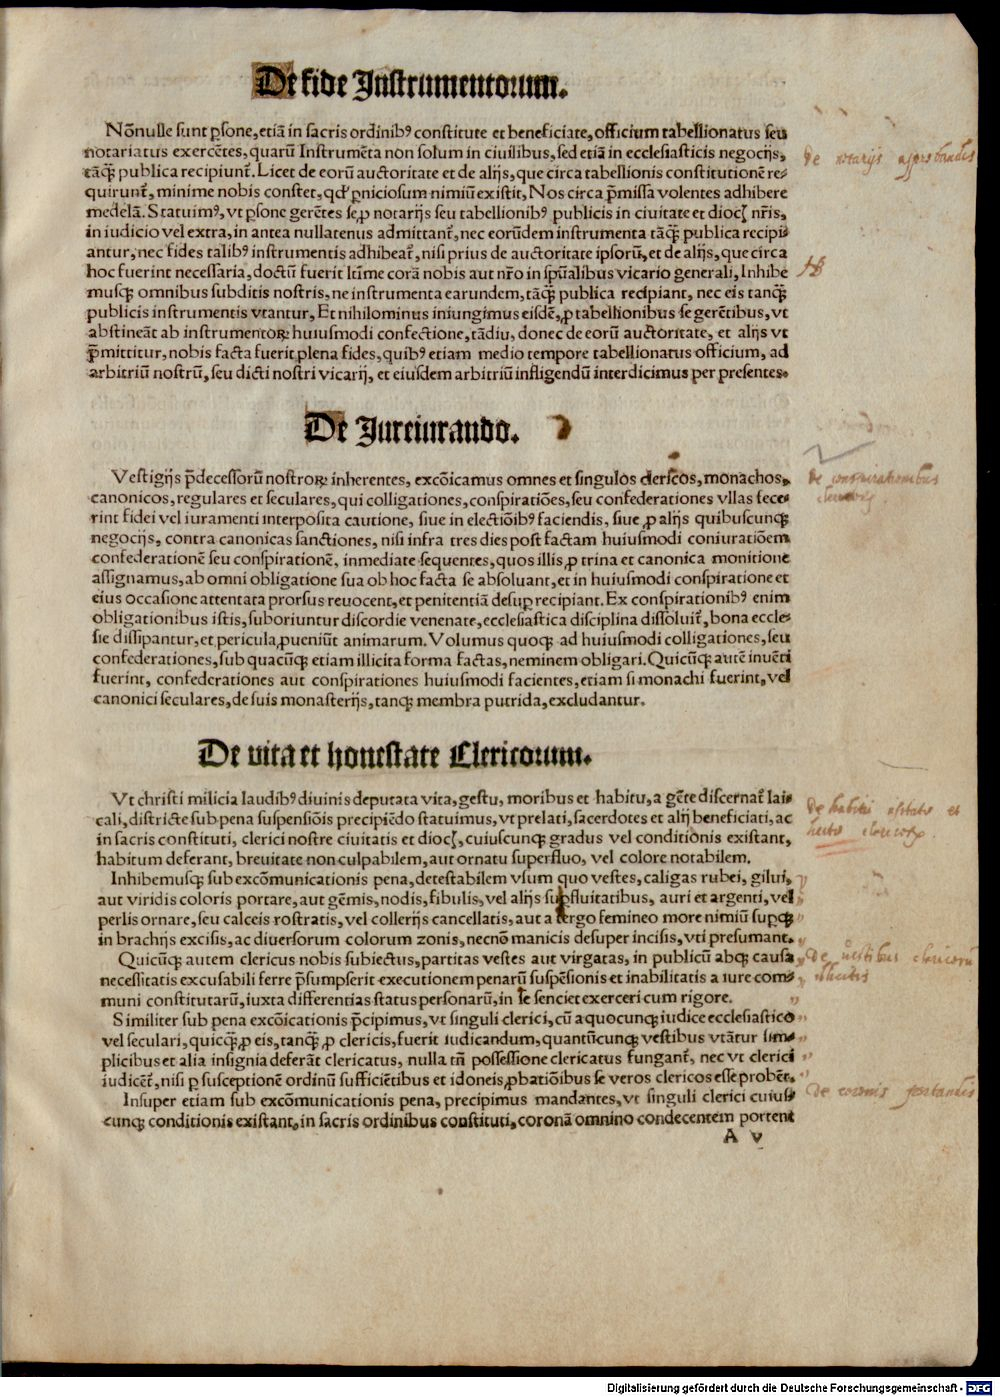 De fide Instrumentorum.
Nōnulle sunt ꝑsone, etiā in sacris ordinibꝰ constitute et beneficiate, officium tabellionatus seu
notariatus exercētes, quarū Instrumēta non solum in ciuilibus, sed etiā in ecclesiasticis negocijs,
tāꝙ̄ publica recipiunt̄. Licet de eorū auctoritate et de alijs, que circa tabellionis constitutionē re⸗
quirunt̄, minime nobis constet, qđ ꝑniciosum nimiū existit, Nos circa p̄missa volentes adhibere
medelā. Statuimꝰ, vt ꝑsone gerētes se ꝓ notarijs seu tabellionibꝰ publicis in ciuitate et diocꝭ nr̄is,
in iudicio vel extra, in antea nullatenus admittant̄, nec eorūdem instrumenta tāꝙ̄ publica recipi⸗
antur, nec fides talibꝰ instrumentis adhibeat̄, nisi prius de auctoritate ipsorū, et de alijs, que circa
hoc fuerint necessaria, doctū fuerit ltīme corā nobis aut nr̄o in spūalibus vicario generali, Inhibe
musqꝫ omnibus subditis nostris, ne instrumenta earundem, tāꝙ̄ publica recipiant, nec eis tanꝙ̄
publicis instrumentis vtantur, Et nihilominus iniungimus eisdē, ꝓ tabellionibus se gerētibus, vt
abstineāt ab instrumentoꝝ huiusmodi confectione, tādiu, donec de eorū auctoritate, et alijs vt
p̄mittitur, nobis facta fuerit plena fides, quibꝰ etiam medio tempore tabellionatus officium, ad
arbitriū nostrū, seu dicti nostri vicarij, et eiusdem arbitriū infligendū interdicimus per presentes.
de notarijs approbandis
De Jureiurando.
Vestigijs p̄decessorū nostroꝝ inherentes, excōicamus omnes et singulos clericos, monachos,
canonicos, regulares et seculares, qui colligationes, conspiratiōes, seu confederationes vllas fece⸗
rint fidei vel iuramenti interposita cautione, siue in electiōibꝰ faciendis, siue ꝓ alijs quibuscunqꝫ
negocijs, contra canonicas sanctiones, nisi infra tres dies post factam huiusmodi coniuratiōem
confederationē seu conspirationē, inmediate sequentes, quos illis ꝓ trina et canonica monitione
assignamus, ab omni obligatione sua ob hoc facta se absoluant, et in huiusmodi conspiratione et
eius occasione attentata prorsus reuocent, et penitentiā desuꝑ recipiant. Ex conspirationibꝰ enim
obligationibus istis, suboriuntur discordie venenate, ecclesiastica disciplina dissoluit̄, bona eccle⸗
sie dissipantur, et pericula ꝓueniūt animarum. Volumus quoqꝫ ad huiusmodi colligationes, seu
confederationes, sub quacūqꝫ etiam illicita forma factas, neminem obligari. Quicūqꝫ autē inuēti
fuerint, confederationes aut conspirationes huiusmodi facientes, etiam si monachi fuerint, vel
canonici seculares, de suis monasterijs, tanqꝫ membra putrida, excludantur.
de conspirationibus
clericoꝝ
De vita et honestate Clericorum.
Vt christi milicia laudibꝰ diuinis deputata vita, gestu, moribus et habitu, a gēte discernat̄ lai⸗
cali, districte sub pena suspensiōis precipiēdo statuimus, vt prelati, sacerdotes et alij beneficiati, ac
in sacris constituti, clerici nostre ciuitatis et diocꝭ, cuiuscunqꝫ gradus vel conditionis existant,
habitum deferant, breuitate non culpabilem, aut ornatu superfluo, vel colore notabilem.
Inhibemusqꝫ sub excōmunicationis pena, detestabilem vsum quo vestes, caligas rubei, gilui,
aut viridis coloris portare, aut gēmis, nodis, fibulis, vel alijs suꝑfluitatibus, auri et argenti, vel
perlis ornare, seu calceis rostratis, vel collerijs cancellatis, aut a tergo femineo more nimiū suꝑqꝫ
in brachijs excisis, ac diuersorum colorum zonis, necnō manicis desuper incisis, vti presumant.
Quicūqꝫ autem clericus nobis subiectus, partitas vestes aut virgatas, in publicū absqꝫ causa
necessitatis excusabili ferre p̄sumpserit executionem penarū suspēsionis et inabilitatis a iure com⸗
muni constitutarū, iuxta differentias status personarū, in se senciet exerceri cum rigore.
Similiter sub pena excōicationis p̄cipimus, vt singuli clerici, cū a quocunqꝫ iudice ecclesiastico
vel seculari, quicꝙ̄ ꝓ eis, tanꝙ̄ ꝓ clericis, fuerit iudicandum, quantūcunqꝫ vestibus vtātur sim⸗
plicibus et alia insignia deferāt clericatus, nulla tn̄ possessione clericatus fungant̄, nec vt clerici
iudicēt̄, nisi ꝑ susceptionē ordinū sufficiētibus et idoneis ꝓbatiōibus se veros clericos esse probēt.
Insuper etiam sub excōmunicationis pena, precipimus mandantes, vt singuli clerici cuius⸗
cunqꝫ conditionis existant, in sacris ordinibus constituti, coronā omnino condecentem portent
de habitu
clericoꝝ
De vestibus clericoru
illicitis
de coronis portandis
A v
Digitalisierung gefördert durch die Deutsche Forschungsgemeinschaft - DFG